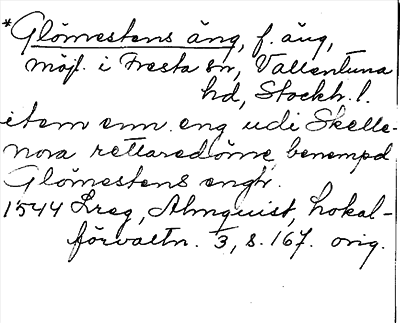 *Glömestens äng, f. äng,
möjl. i Fresta sn, Vallentuna
hd, Stockh. l.
item enn eng udi Skelle-
nora rettaredöme, benempd
Glömestens engh.
1544 Lreg, Almquist, Lokal-
förvaltn. 3, s. 167. orig.